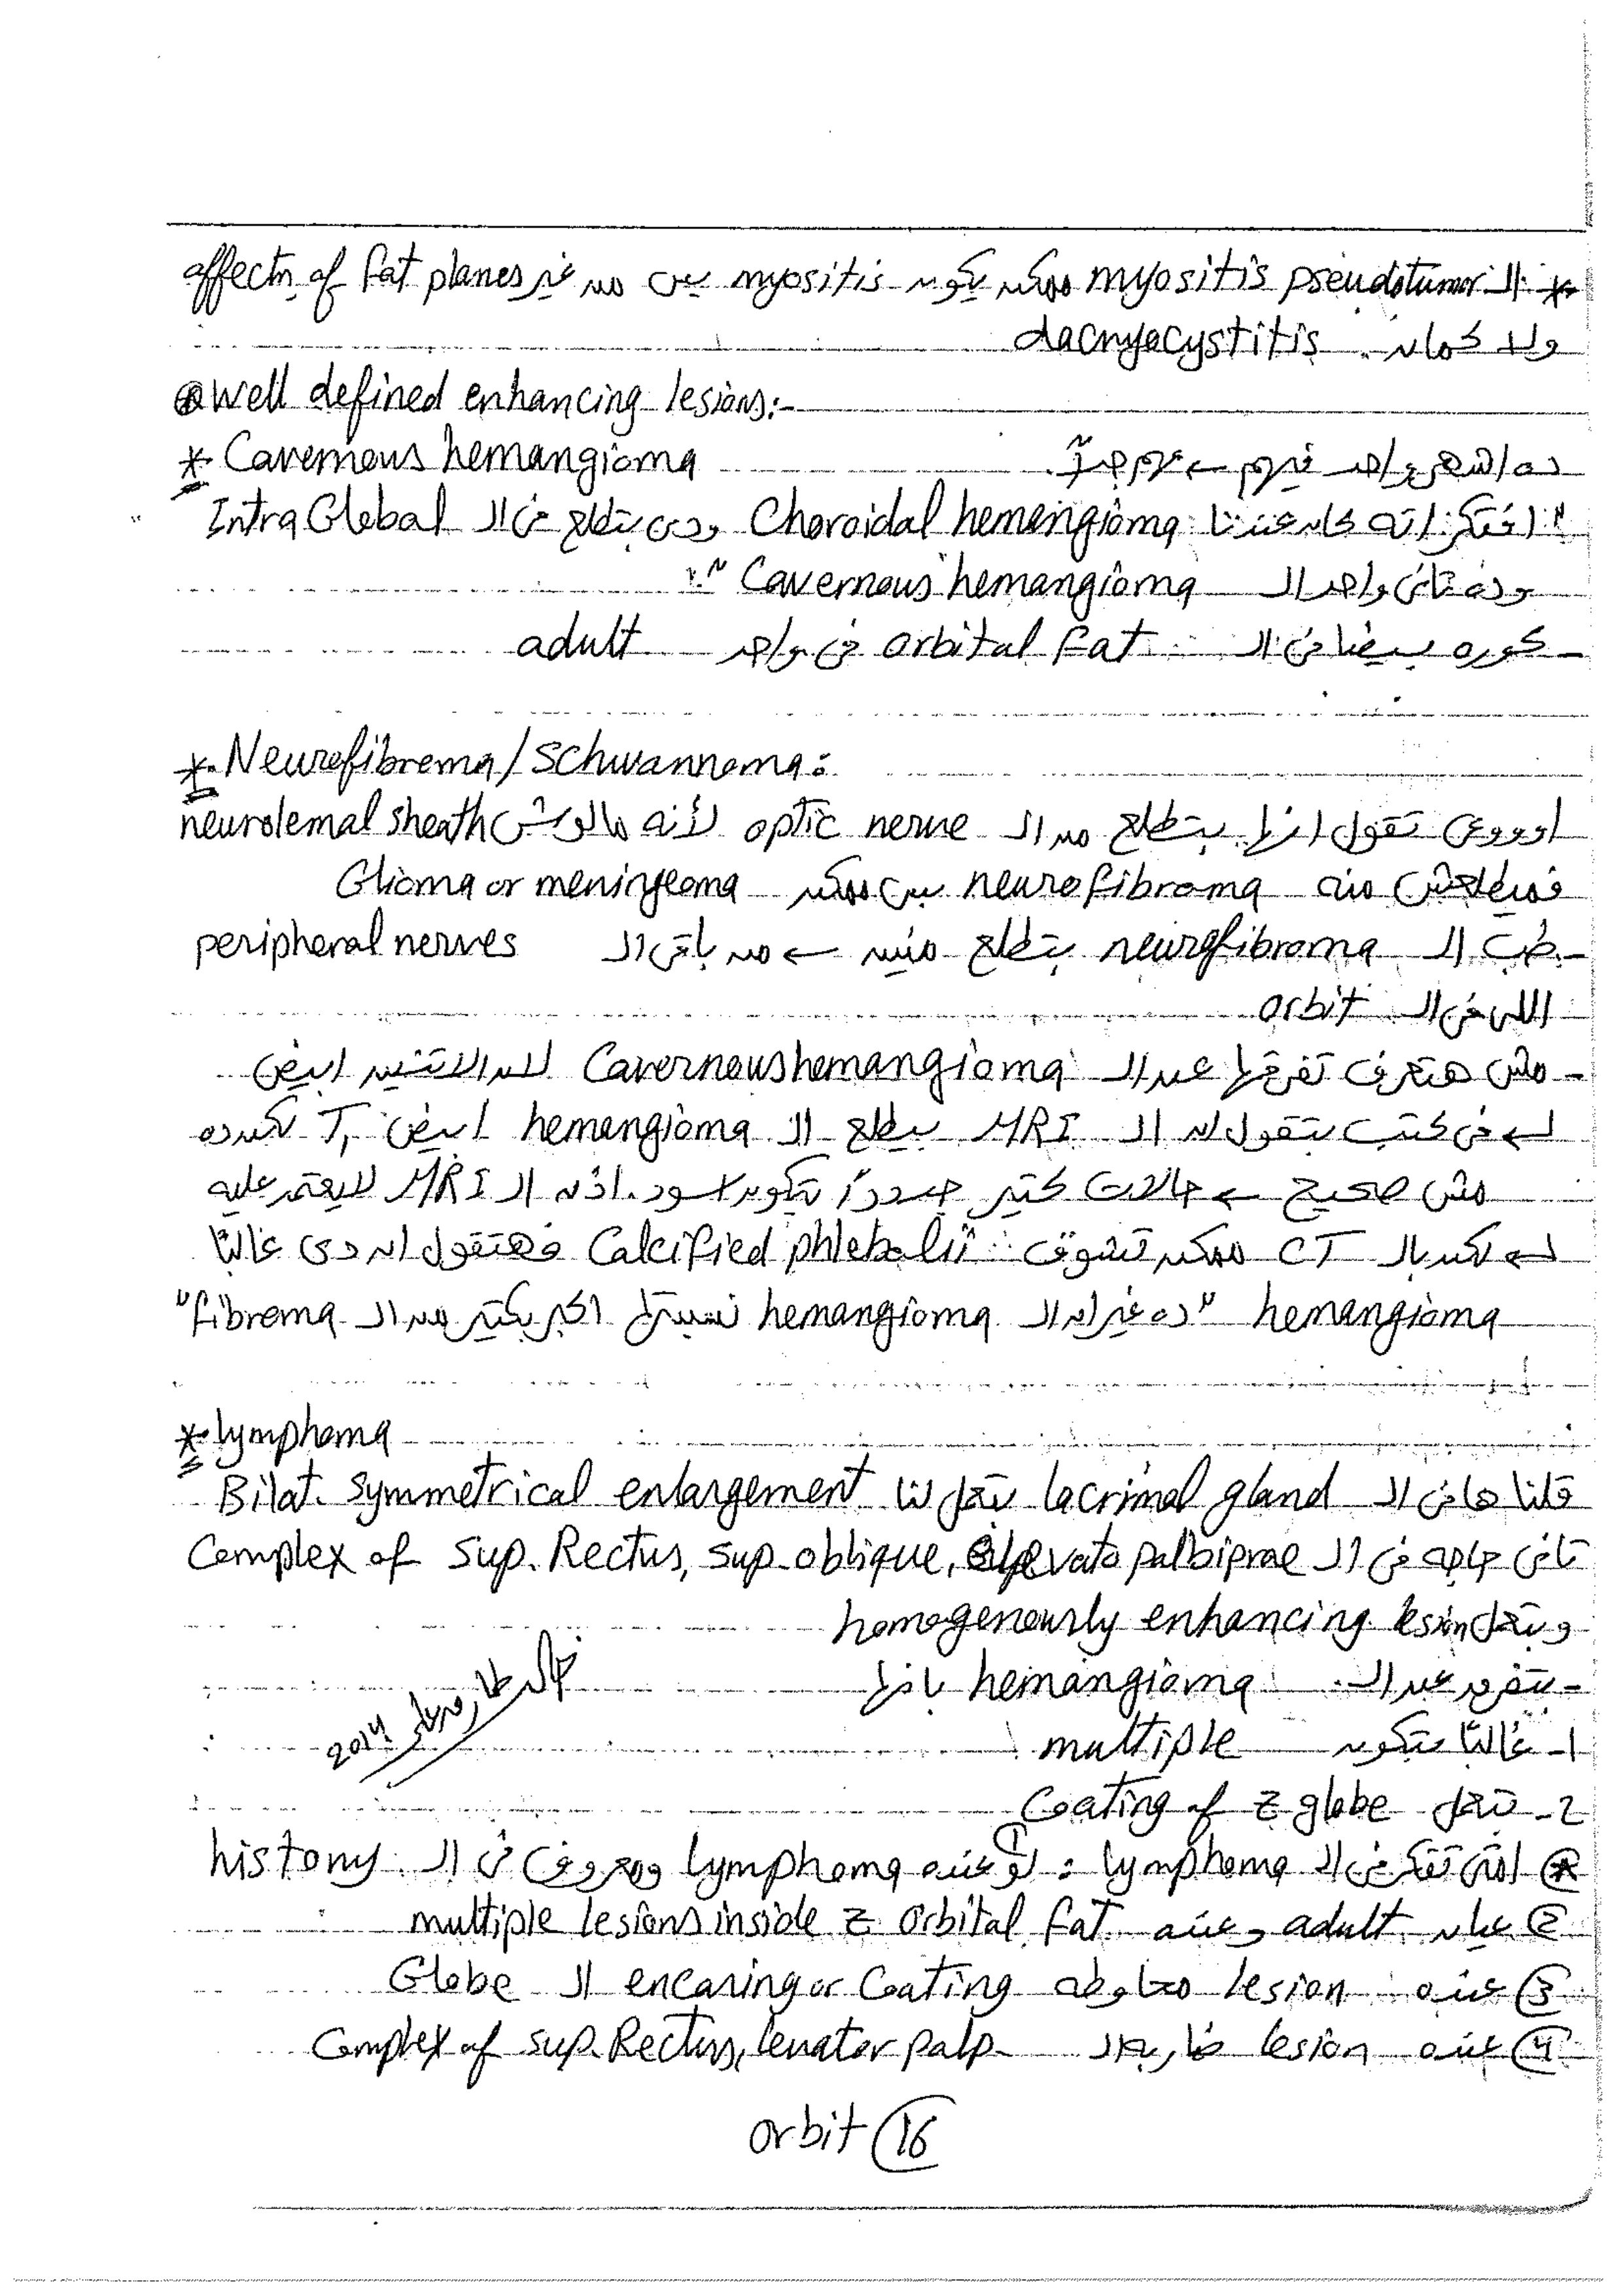 * الـ myositis pseudotumor ممكن يكون myositis بس من غير affectn of fat planes
ولا كمان dacryocystitis
⊛ Well defined enhancing lesions:-
* Cavernous hemangioma ده اشهر واحد فيهم ← مهم جدًا
" افتكر انه كان عندنا Choroidal hemengioma ودى بتطلع فى الـ Intra Global
وده تانى واحد الـ Cavernous hemangioma "
- كوره بيضا فى الـ orbital fat فى واحد adult
* Neurofibroma / Schwannoma :
اوووعى تقول انها بتطلع من الـ optic nerve لأنه مالوش neurolemal sheath
فميطلعش منه neurofibroma بس ممكن Glioma or meningeoma
- طب الـ neurofibroma بتطلع منين ← من باقى الـ peripheral nerves
اللى فى الـ orbit
- مش هتعرف تفرقها عن الـ Cavernous hemangioma لان الاتنين ابيض
↳ فى كتب بتقول ان الـ MRI بيطلع الـ hemengioma ابيض T1 لكن ده
مش صحيح ← حالات كتير جدًا بتكون اسود. اذن الـ MRI لايعتمد عليه
↳ لكن بالـ CT ممكن تشوف Calcified phlebolith فهتقول ان دى غالبًا
hemangioma " ده غير ان الـ hemangioma نسبتها اكبر بكتير من الـ fibroma "
* lymphoma
قلنا هنا فى الـ lacrimal gland بتعمل لنا Bilat. symmetrical enlargement
تانى حاجه فى الـ Complex of sup. Rectus, sup. oblique, elevato palbiprae
وبتعمل homogenously enhancing lesion
- بتفرق عن الـ hemangioma بانها
١- غالبًا بتكون multiple
٢- بتعمل Coating of z globe
⊛ امتى تفكر فى الـ lymphoma : ① لو عنده lymphoma ومعروف فى الـ history
② عيان adult وعنده multiple lesions inside z orbital fat
③ عنده lesion محاوطه encaring or Coating الـ Globe
④ عنده lesion ضاربه الـ Complex of sup. Rectus, levator palp
2014
orbit 16